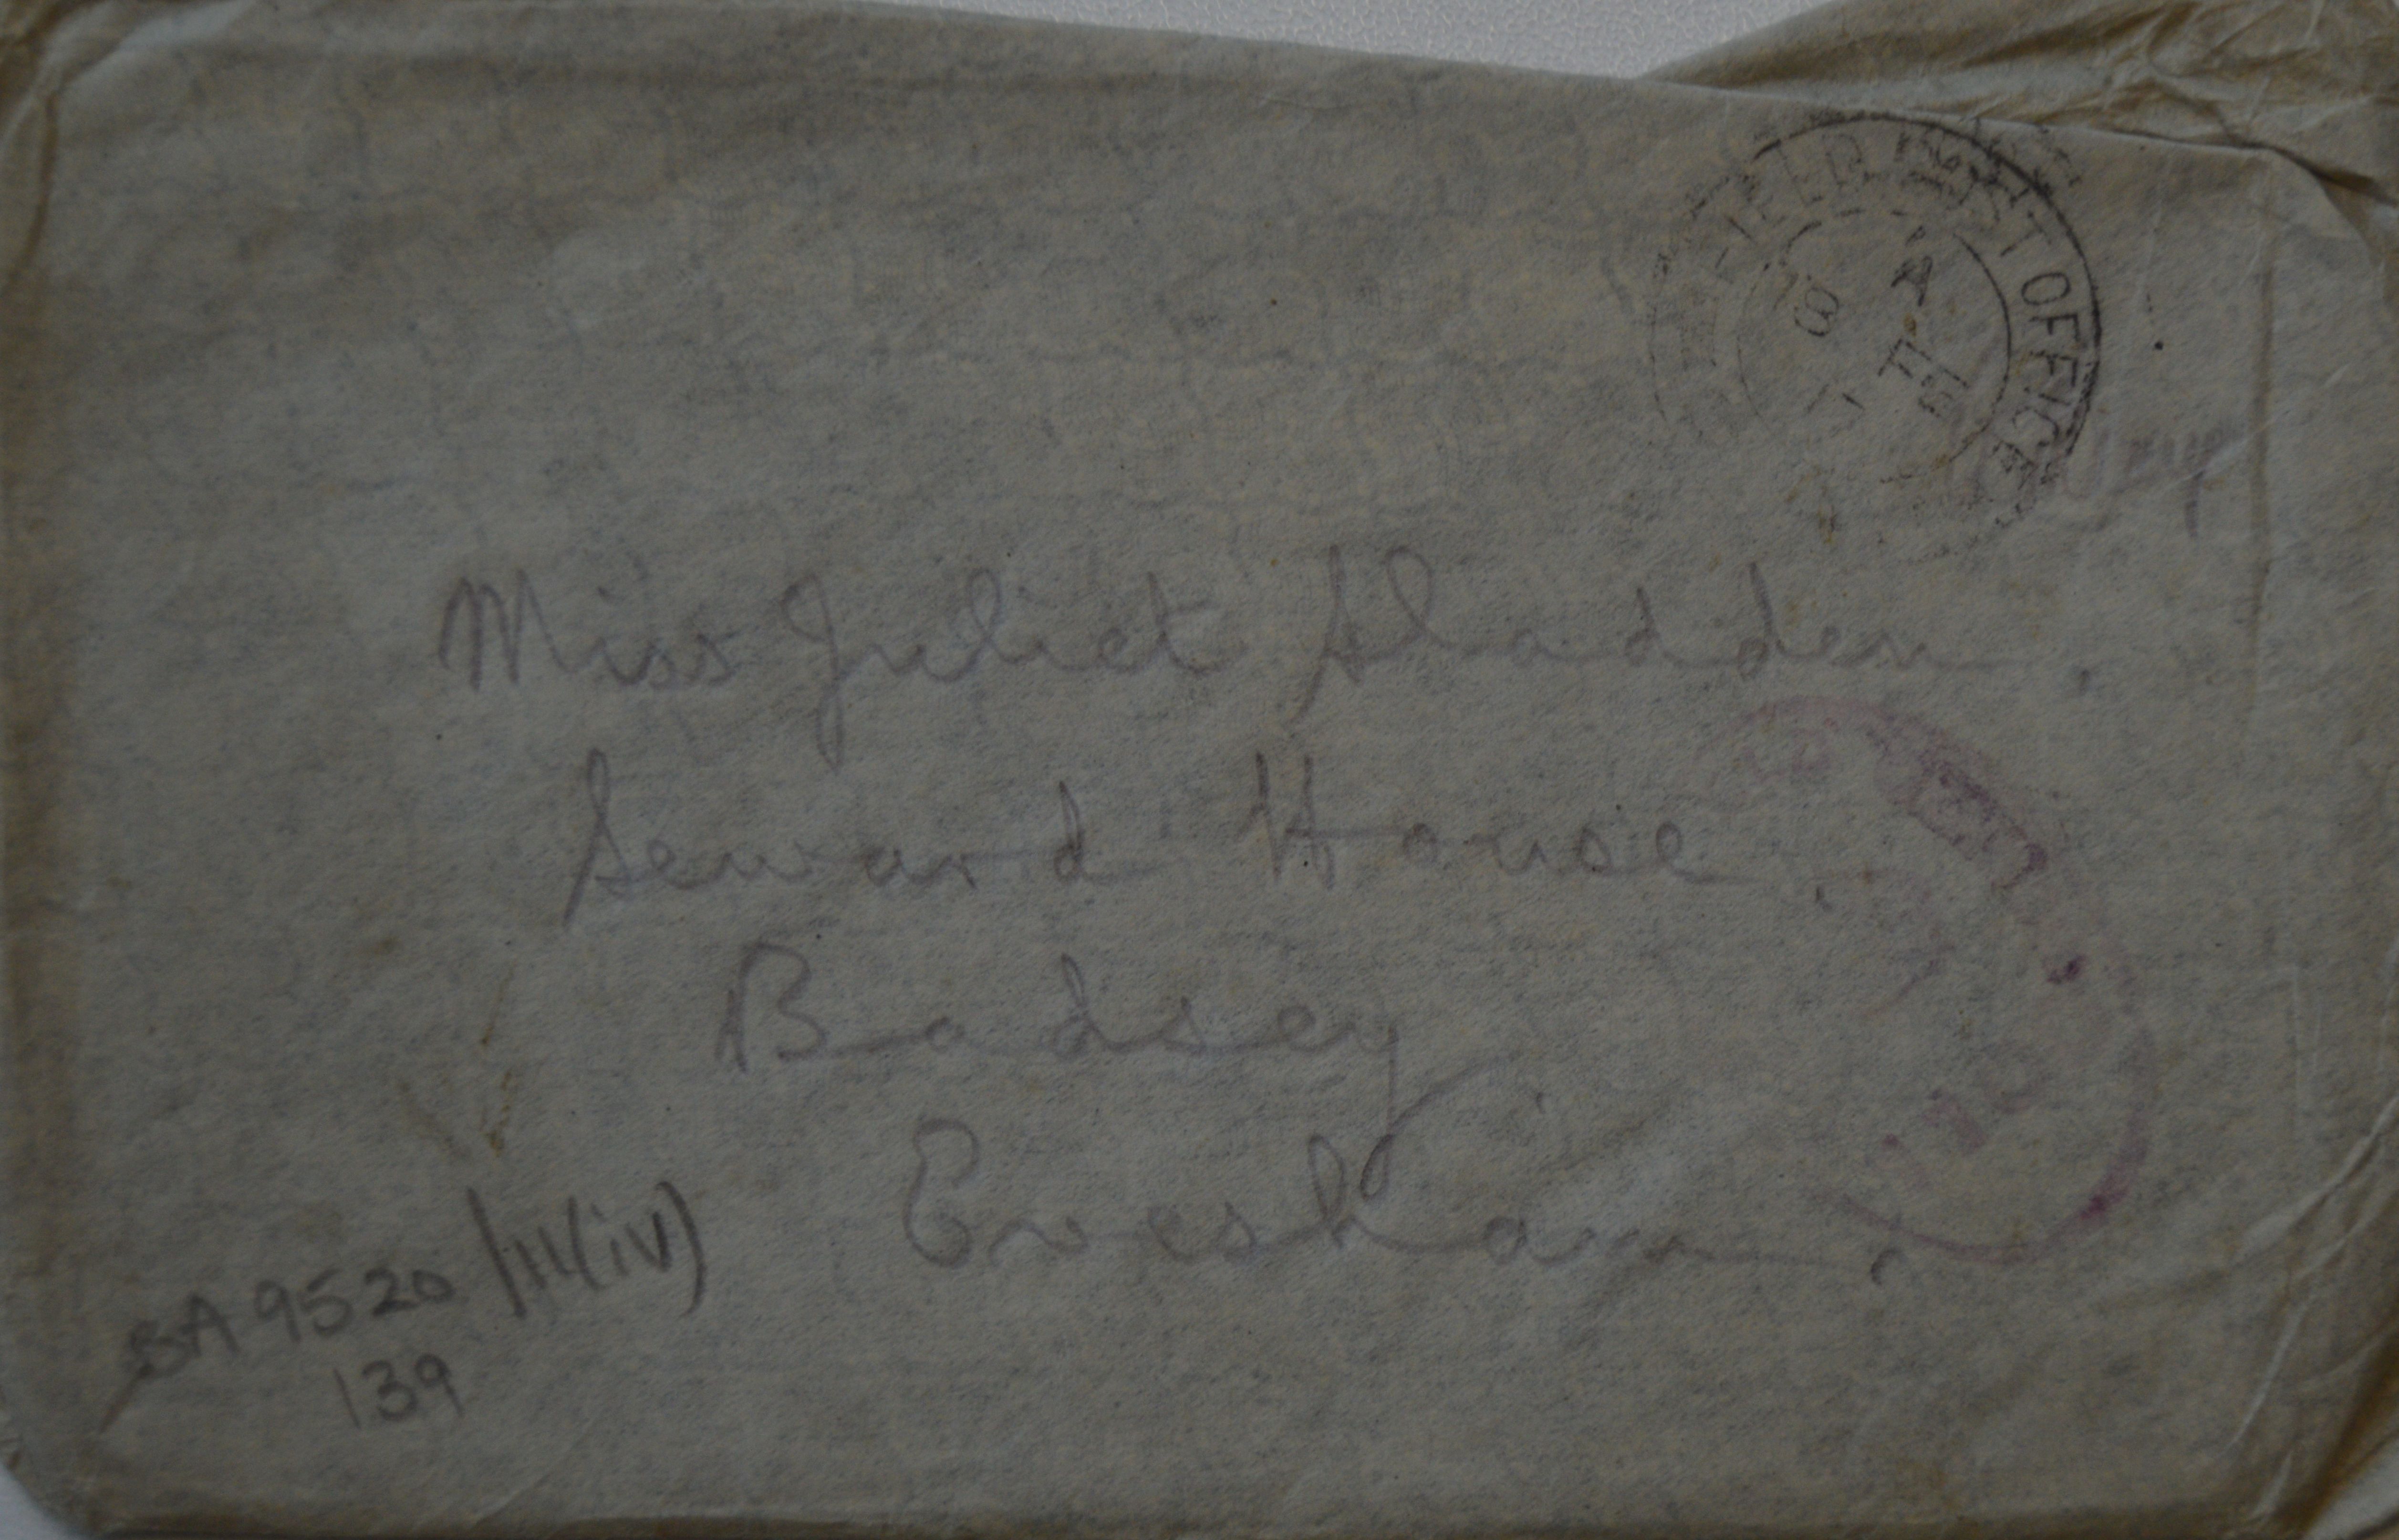 FIELD POST OFFICE
A
Miss Juliet Sladden.
Seward House,
Badsey,
Evesham.
BA 9520/III(iv)
139